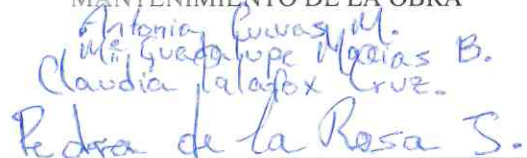 MANTENIMIENTO DE LA OBRA
Antonia Cuevas M.
Ma Guadalupe Macias B.
Claudia Palafox Cruz.
Pedra de la Rosa S.